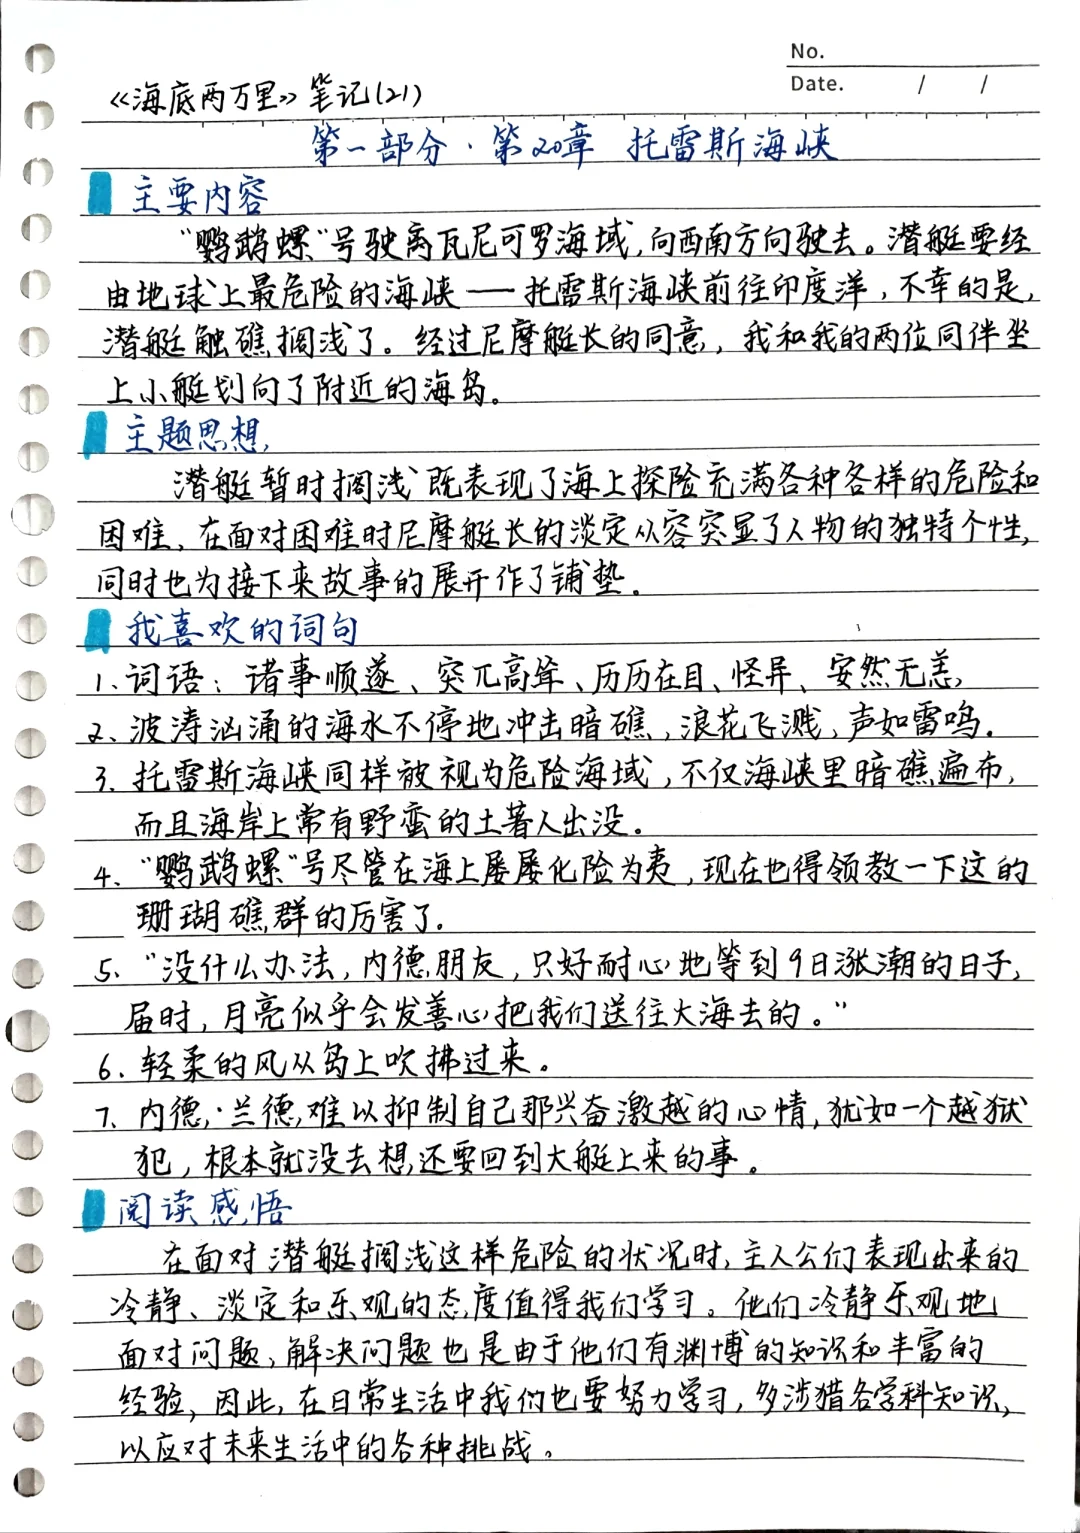 No.
Date. / /
《海底两万里》笔记(21)
第一部分·第20章 托雷斯海峡
主要内容
“鹦鹉螺”号驶离瓦尼可罗海域,向西南方向驶去。潜艇要经
由地球上最危险的海峡——托雷斯海峡前往印度洋,不幸的是,
潜艇触礁搁浅了。经过尼摩艇长的同意,我和我的两位同伴坐
上小艇划向了附近的海岛。
主题思想
潜艇暂时搁浅既表现了海上探险充满各种各样的危险和
困难、在面对困难时尼摩艇长的淡定从容突显了人物的独特个性,
同时也为接下来故事的展开作了铺垫。
我喜欢的词句
1、词语:诸事顺遂、突兀高耸、历历在目、怪异、安然无恙
2、波涛汹涌的海水不停地冲击暗礁,浪花飞溅,声如雷鸣.
3、托雷斯海峡同样被视为危险海域,不仅海峡里暗礁遍布,
而且海岸上常有野蛮的土著人出没。
4、“鹦鹉螺”号尽管在海上屡屡化险为夷,现在也得领教一下这的
珊瑚礁群的厉害了.
5、“没什么办法,内德朋友,只好耐心地等到9日涨潮的日子,
届时,月亮似乎会发善心把我们送往大海去的。”
6、轻柔的风从岛上吹拂过来。
7、内德·兰德难以抑制自己那兴奋激越的心情,犹如一个越狱
犯,根本就没去想还要回到大艇上来的事。
阅读感悟
在面对潜艇搁浅这样危险的状况时,主人公们表现出来的
冷静、淡定和乐观的态度值得我们学习。他们冷静乐观地
面对问题、解决问题也是由于他们有渊博的知识和丰富的
经验,因此,在日常生活中我们也要努力学习,多涉猎各学科知识,
以应对未来生活中的各种挑战。